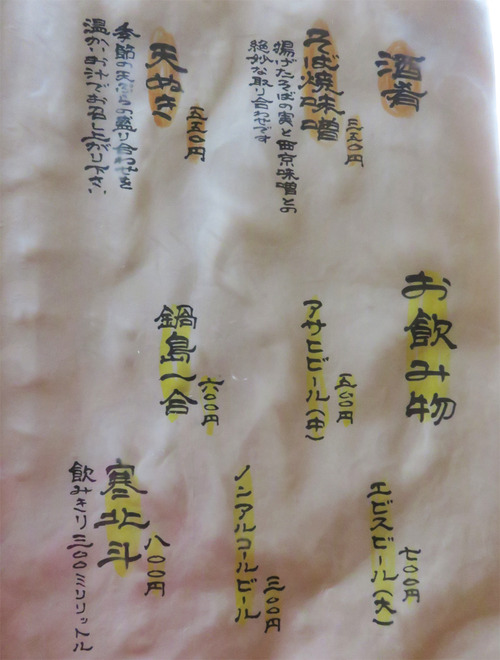 酒肴
そば焼味噌
三五〇円
揚げたそばの実と田京味噌との
絶妙な取り合わせです
天ぬき
五五〇円
季節の天ぷらの盛り合わせを
温かいお汁でお召し上がり下さい
お飲み物
アサヒビール(中)
五〇〇円
鍋島一合
六〇〇円
エビスビール(大)
七〇〇円
ノンアルコールビール
三〇〇円
寒北斗
八〇〇円
飲みきり三〇〇ミリリットル